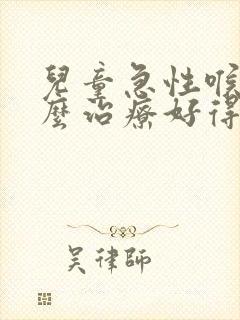 兒童急性喉
麼治療好得
吳律師